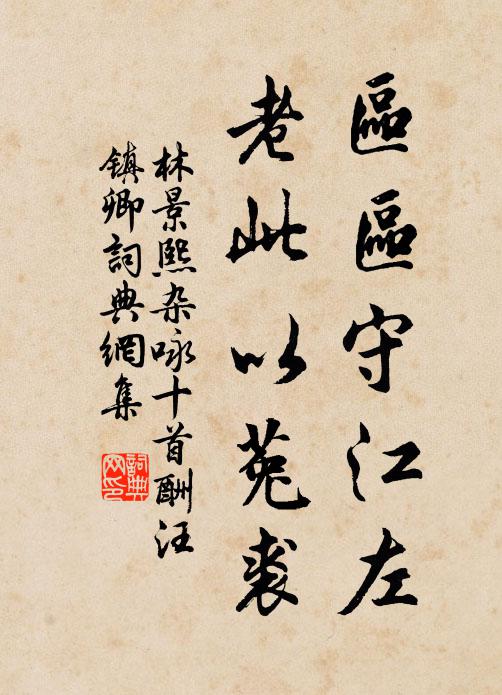 區區守江左
老此以菟裘
林景熙杂咏十首酬汪
镇卿詞典網集
詞典网印